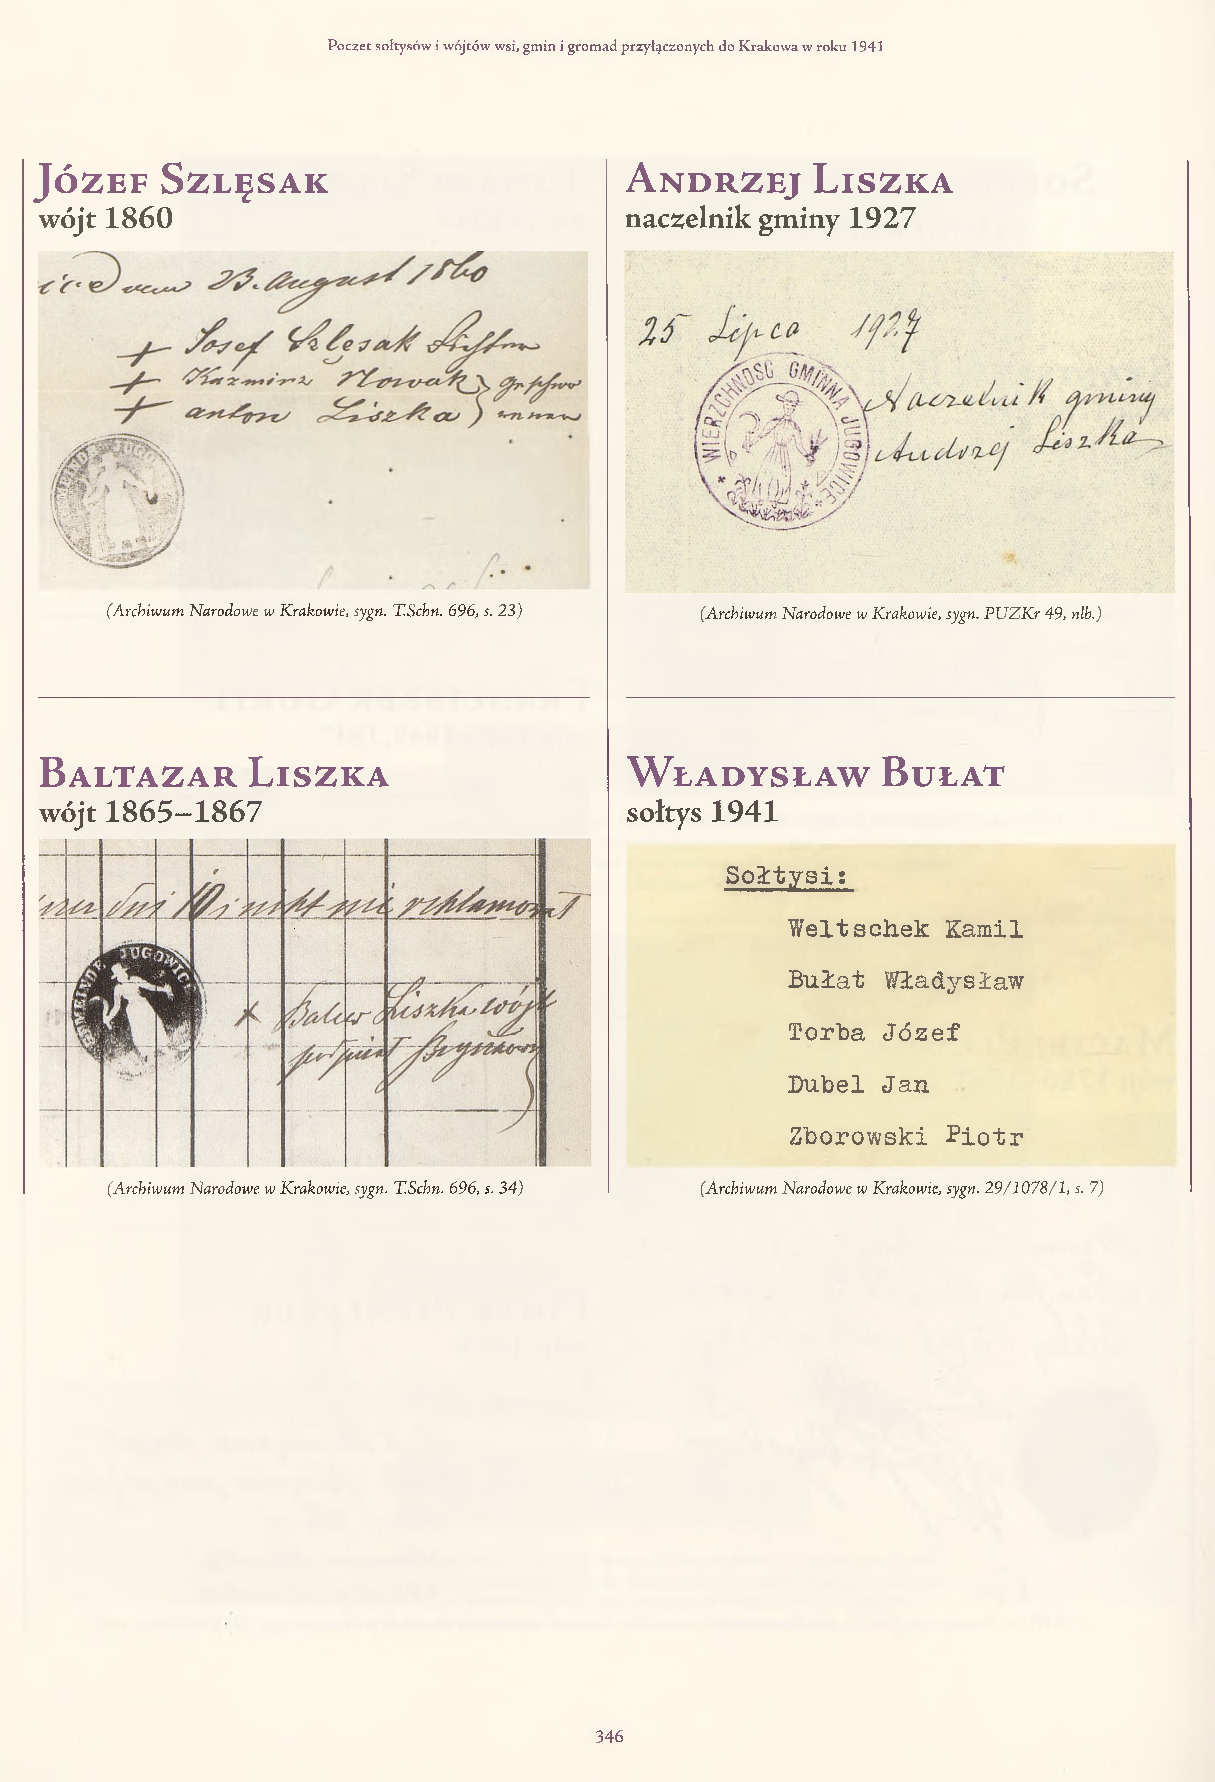 Poczet sołtysów i wójtów wsi, gmin i gromad przyłączonych do Krakowa w roku 1941
Józef Szlęsak
wójt 1860
23. August 1860
+ Josef Szlęsak Richter
+ Kazmirz Nowak
+ anton Liszka
GEMEINDE JUGOWICE
(Archiwum Narodowe w Krakowie, sygn. T.Schn. 696, s. 23)
Baltazar Liszka
wójt 1865–1867
dni 10 i nikt nie reklamował
GEMEINDE JUGOWICE
x Liszka wójt
podpisał
(Archiwum Narodowe w Krakowie, sygn. T.Schn. 696, s. 34)
Andrzej Liszka
naczelnik gminy 1927
25 Lipca 1927
WIERZCHNOŚĆ GMINNA JUGOWICE
Naczelnik gminy
Andrzej Liszka
(Archiwum Narodowe w Krakowie, sygn. PUZKr 49, nlb.)
Władysław Bułat
sołtys 1941
Sołtysi:
Weltschek Kamil
Bułat Władysław
Torba Józef
Dubel Jan
Zborowski Piotr
(Archiwum Narodowe w Krakowie, sygn. 29/1078/1, s. 7)
346